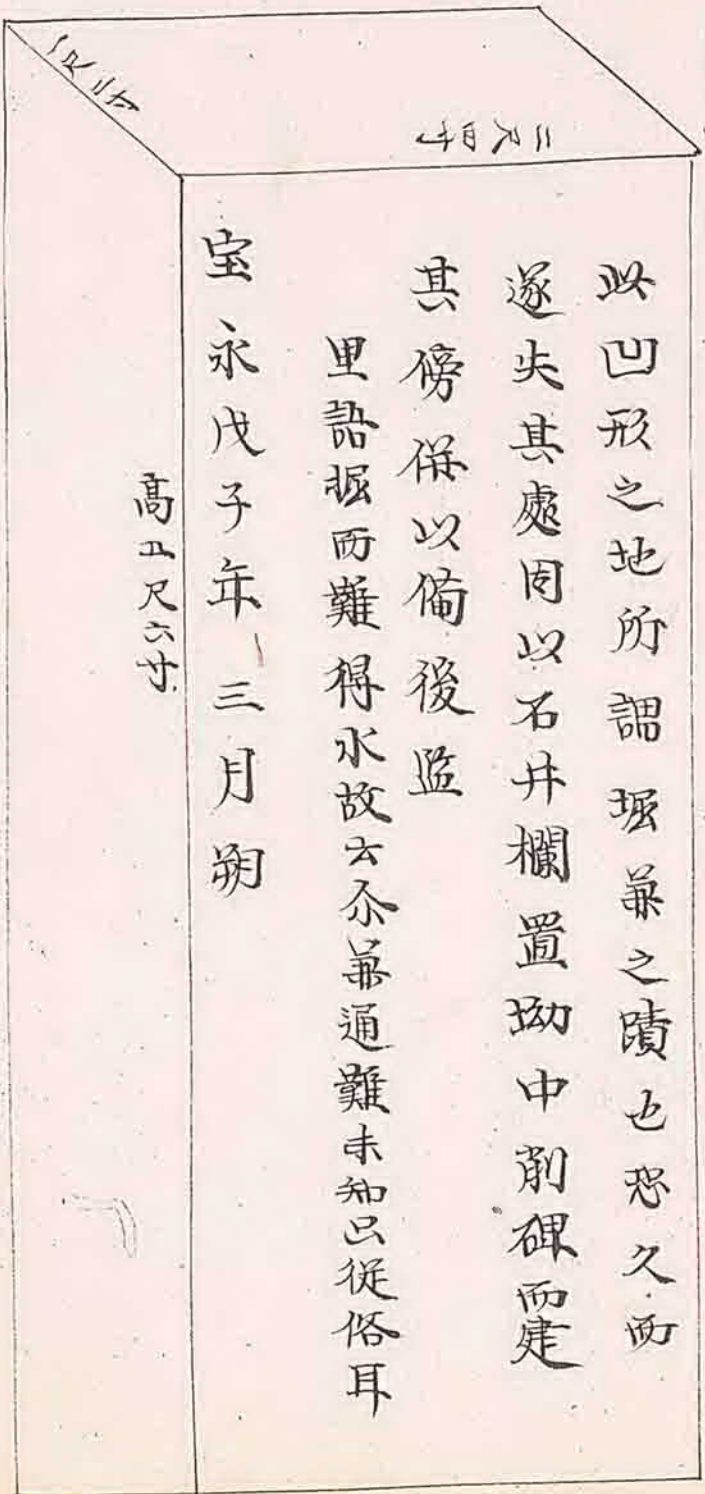 三尺四寸
一尺二寸
此凹形之地所謂堀兼之蹟也恐久而
遂失其處因以石井欄置坳中削碑而建
其傍併以備後監
里語堀而難得水故云尒兼通難未知只従俗耳
宝永戊子年三月朔
高五尺六寸